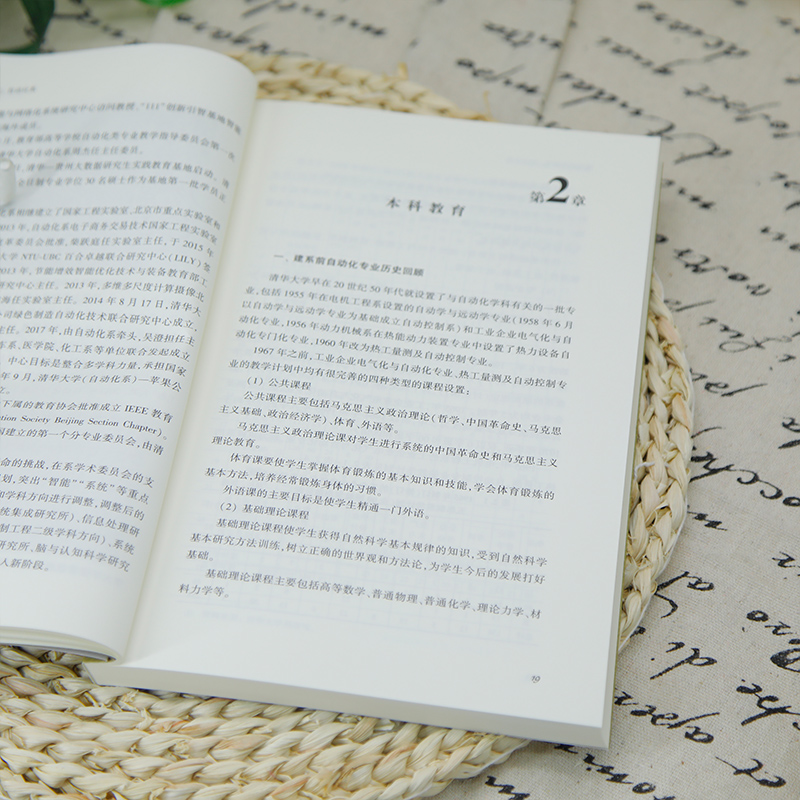 与网络化系统研究中心访问教授、"111"创新引智基地智能
教育部高等学校自动化类专业教学指导委员会第一次
华大学自动化系周杰任主任委员。
清华—贵州大数据研究生实践教育基地启动，
全日制专业学位30名硕士作为基地第一批学员正
系相继建立了国家工程实验室、北京市重点实验室和
013年，自动化系电子商务交易技术国家工程实验室
改革委员会批准，柴跃廷任实验室主任，于2015年
大学NTU-UBC百合卓越联合研究中心(LILY)签
013年，节能增效智能优化技术与装备教育部工
研究中心主任。2013年，多维多尺度计算摄像北
海任实验室主任。2014年8月17日，清华大
公司绿色制造自动化技术联合研究中心成立，
主任。2017年，由自动化系牵头，吴澄担任主
车系、医学院、化工系等单位联合发起成立
中心目标是整合多学科力量，承担国家
年9月，清华大学(自动化系)—苹果公
立。
下属的教育协会批准成立IEEE教育
ation Society Beijing Section Chapter)。
国建立的第一个分专业委员会，由清
命的挑战，在系学术委员会的支
划，突出"智能""系统"等重点
和学科方向进行调整，调整后的
统集成研究所)、信息处理研
制工程二级学科方向)、系统
研究所、脑与认知科学研究
入新阶段。
第2章
本科教育
一、建系前自动化专业历史回顾
清华大学早在20世纪50年代就设置了与自动化学科有关的一批专
业，包括1955年在电机工程系设置的自动学与远动学专业(1958年6月
以自动学与远动学专业为基础成立自动控制系)和工业企业电气化与自
动化专业，1956年动力机械系在热能动力装置专业中设置了热力设备自
动化专门化专业，1960年改为热工量测及自动控制专业。
1967年之前，工业企业电气化与自动化专业、热工量测及自动控制专
业的教学计划中均有很完善的四种类型的课程设置：
(1) 公共课程
公共课程主要包括马克思主义政治理论(哲学、中国革命史、马克思
主义基础、政治经济学)、体育、外语等。
马克思主义政治理论课对学生进行系统的中国革命史和马克思主义
理论教育。
体育课要使学生掌握体育锻炼的基本知识和技能，学会体育锻炼的
基本方法，培养经常锻炼身体的习惯。
外语课的主要目标是使学生精通一门外语。
(2) 基础理论课程
基础理论课程使学生获得自然科学基本规律的知识，受到自然科学
基本研究方法训练，树立正确的世界观和方法论，为学生今后的发展打好
基础。
基础理论课程主要包括高等数学、普通物理、普通化学、理论力学、材
料力学等。
19